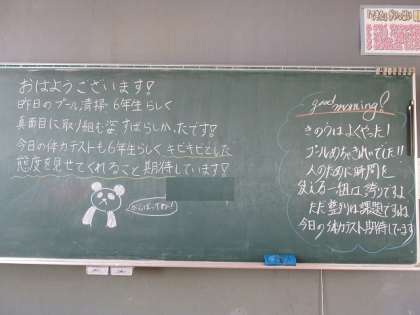 おはようございます!
昨日のプール清掃、6年生らしく
真面目に取り組む姿すばらしかったです!
今日の体力テストも6年生らしくキビキビとした
態度を見せてくれること期待しています!
がんばってね!
good morning!
きのうはよくやった!
プールめちゃきれいでした!!
人のために時間を
使える一組は誇りですよ
ただ整列は課題ですね
今日の体力テスト期待してます